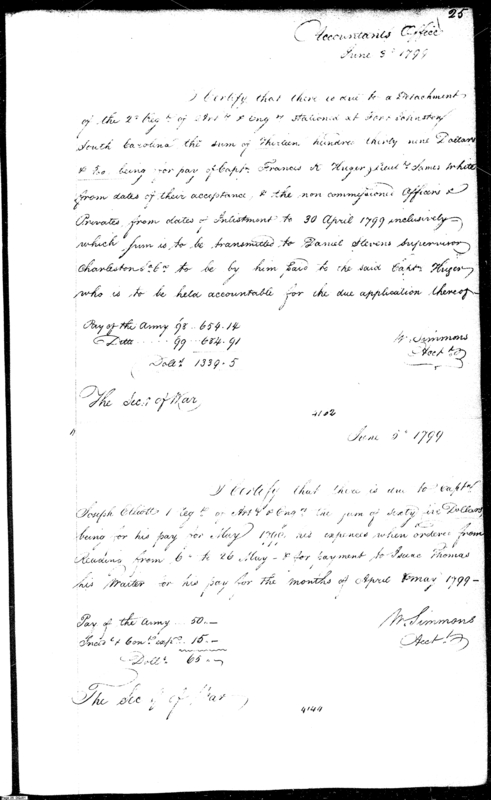 25
Accountants Office
June 3d 1799
I Certify that there is due to a Detachment
of the 2d Regt. of Arty. & Engrs. Stationed at Fort Johnston
South Carolina the sum of Thirteen hundred thirty nine Dollars
being for pay of Capt. Francis K Huger, Lieut. James White
from dates of their acceptance, & the non commissioned Officers &
Privates from dates of Inlistment to 30 April 1799 inclusively
which sum is to be transmitted to Daniel Stevens Supervisor
Charleston So. Ca. to be by him paid to the said Capt. Huger
who is to be held accountable for the due application thereof
Pay of the Army 98 - 654.14
Ditto 99 - 684.91
Dolls. 1339.5
W. Simmons
Acctt.
The Secy. of War
4102
June 5th 1799
I Certify that there is due to Captn.
Joseph Elliott 1 Regt. of Arty. & Engrs. the sum of Sixty Dollars,
being for his pay for May 1799, his expences when ordered from
Reading from 6th to 26 May - & for payment to Isaac Thomas
his Waiter for his pay for the months of April & May 1799 -
Pay of the Army 50 -
15 -
Dolls. 65 -
W. Simmons
Acctt.
The Secy. of War
4144